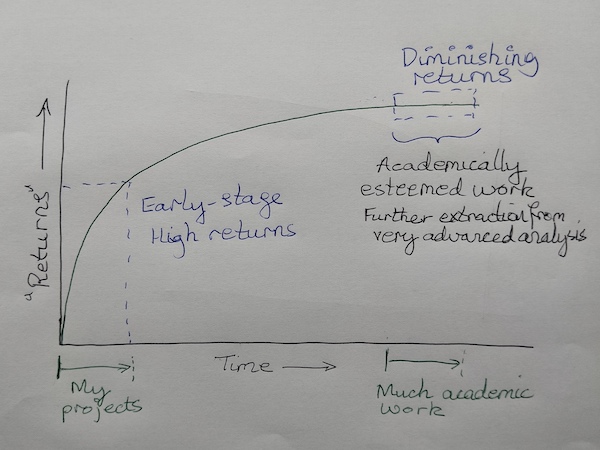 Diminishing
returns
Academically
esteemed work
Further extraction from
very advanced analysis
Early-stage
High returns
"Returns"
Time
My
projects
Much academic
work